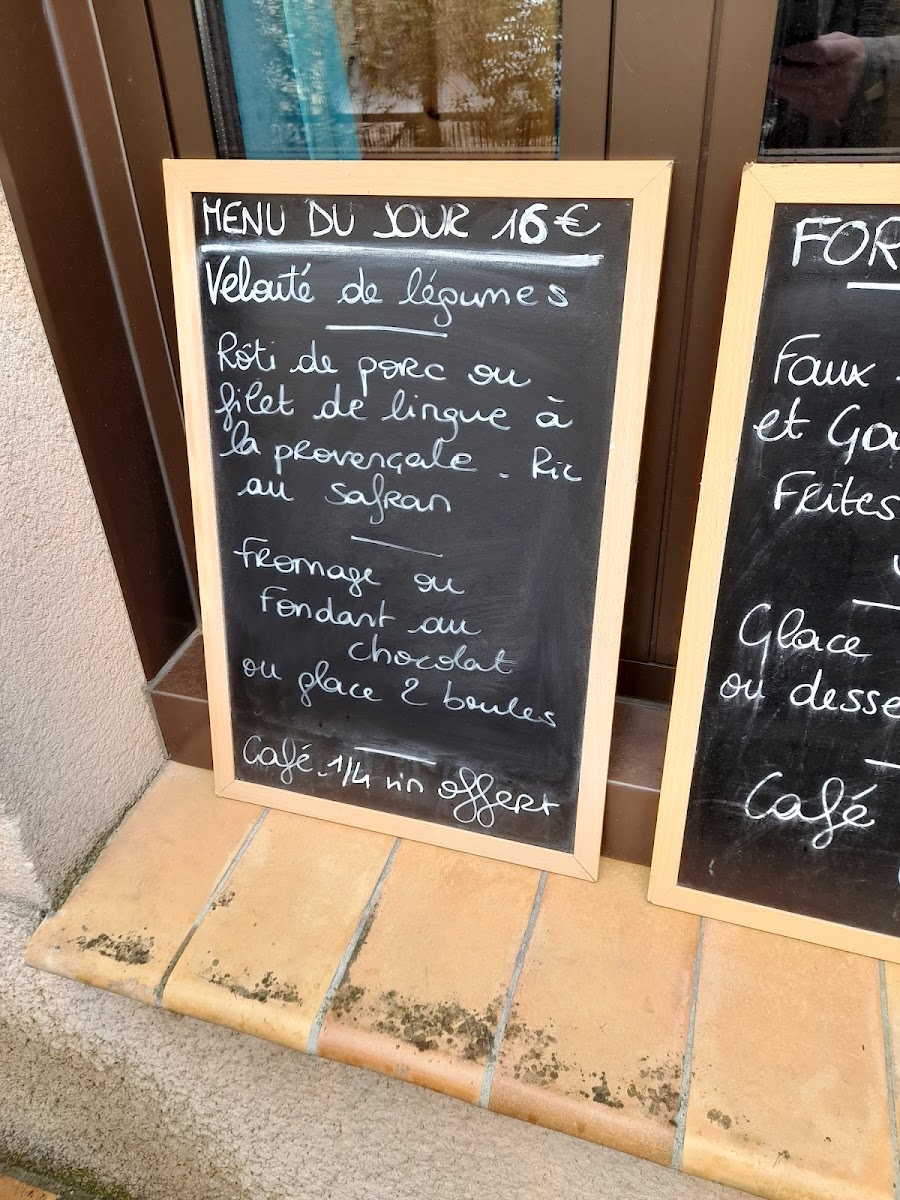 MENU DU JOUR 16€
Velouté de légumes
Rôti de porc ou
filet de lingue à
la provençale - Riz
au safran
Fromage ou
Fondant au
chocolat
ou glace 2 boules
Café - 1/4 vin offert
FOR
Faux
et Ga
Frites
Glace
ou desse
Café